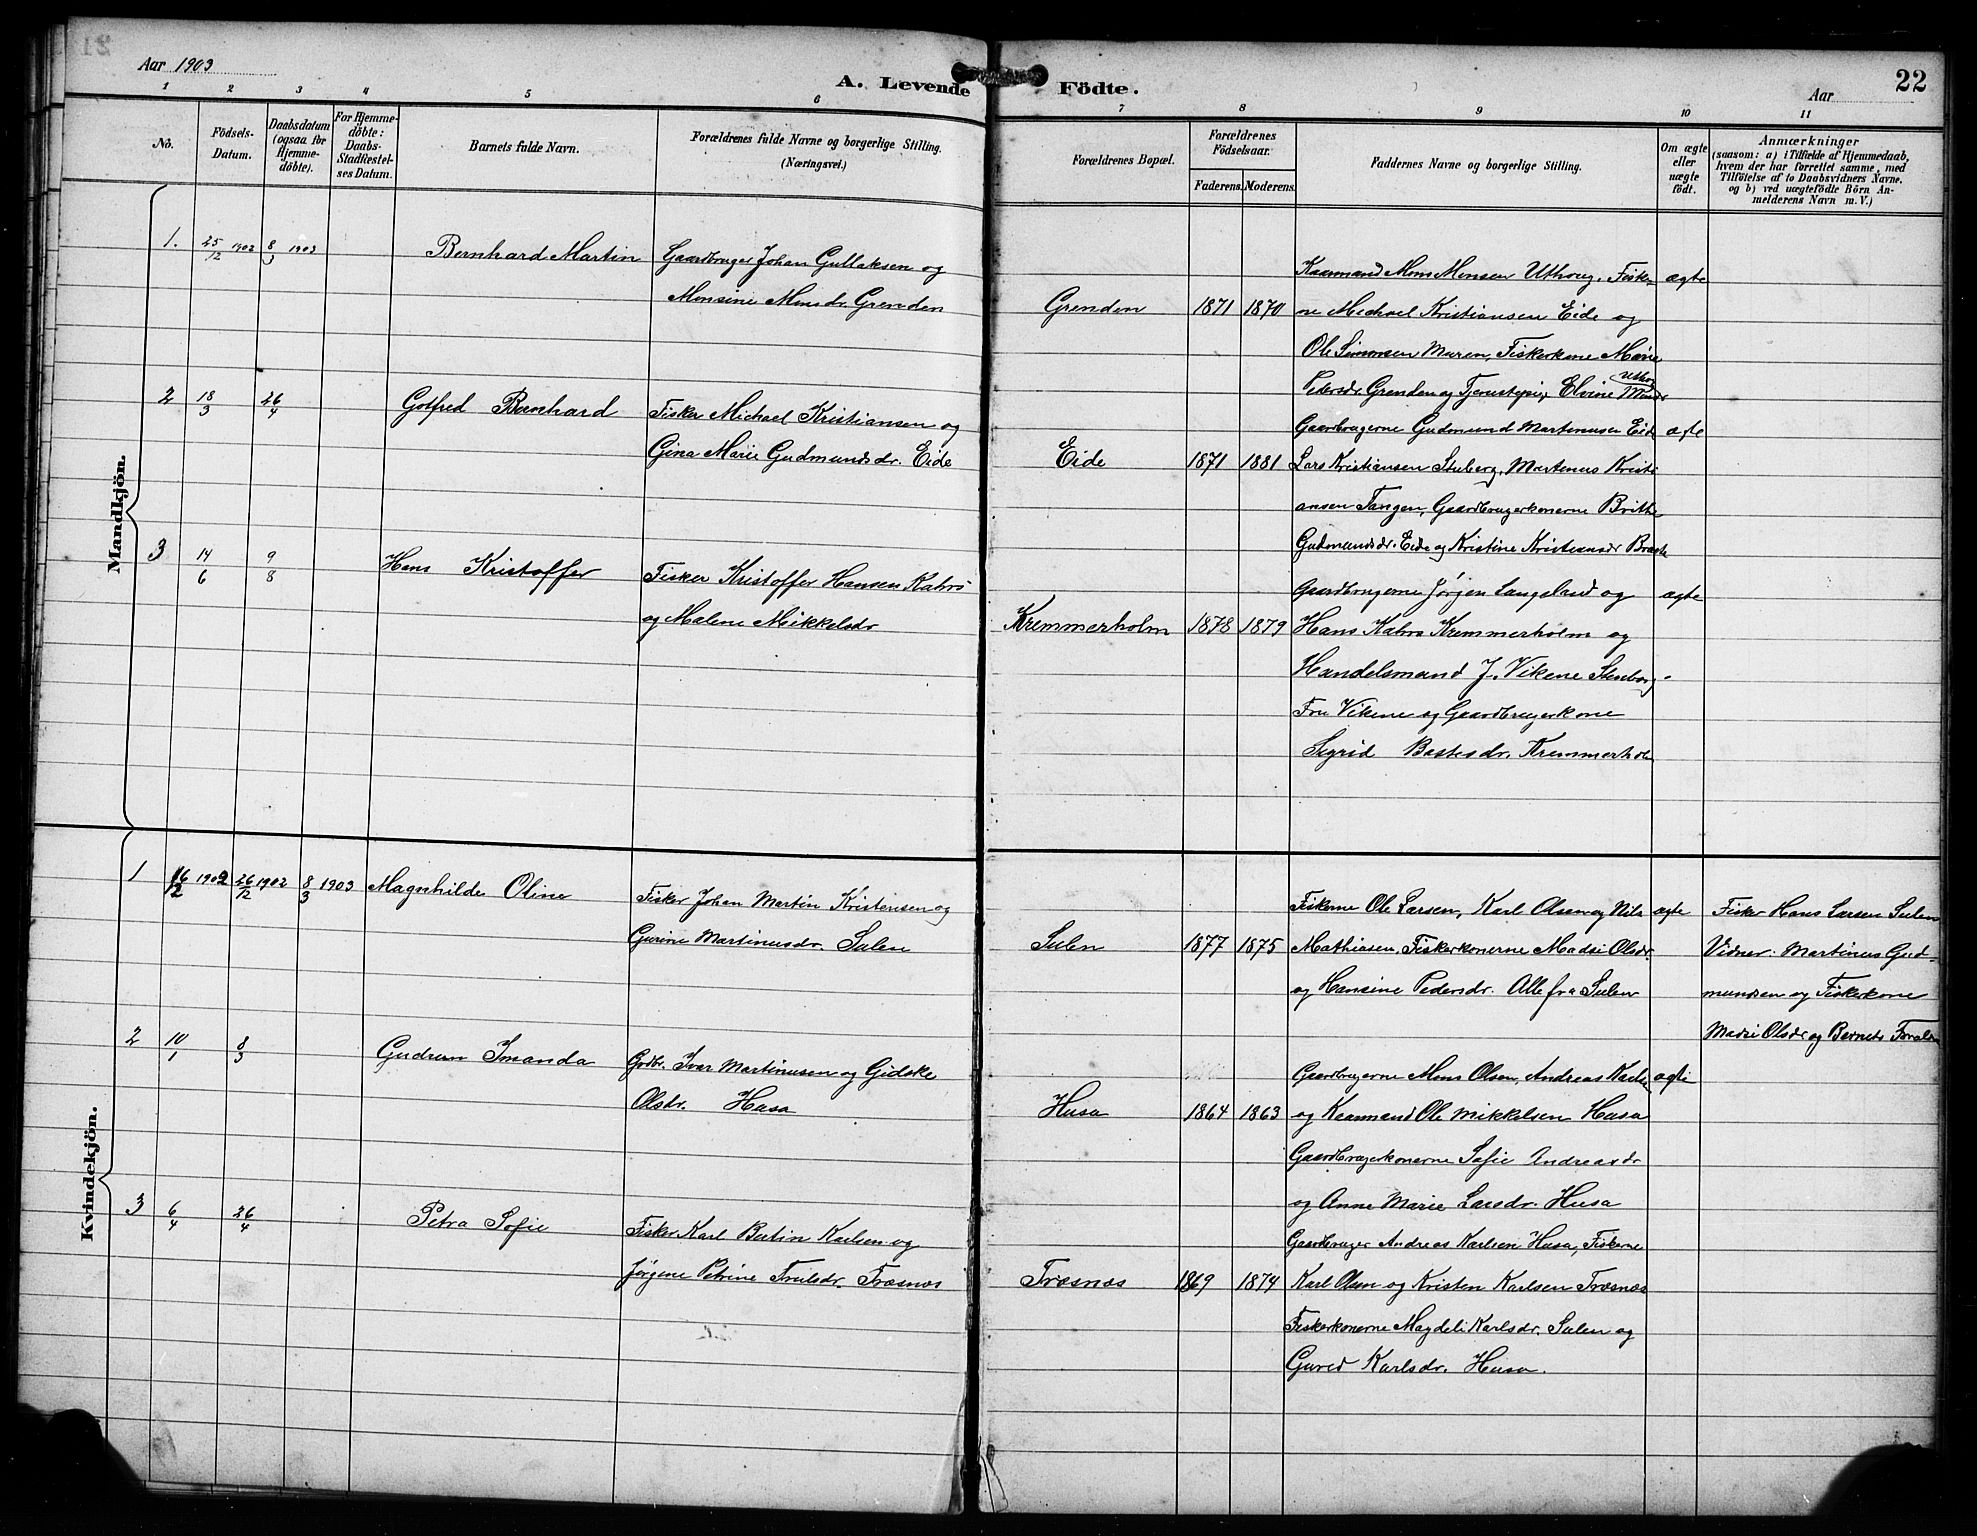 Aar 1903
A. Levende Födte.
Aar
22
1 2 3 4 5 6 7 8 9 10 11
No.
Födsels-Datum.
Daabsdatum (ogsaa for Hjemmedöbte).
For Hjemmedöbte: Daabs-Stadfæstelses Datum.
Barnets fulde Navn.
Forældrenes fulde Navne og borgerlige Stilling.
(Næringsvei.)
Forældrenes Bopæl.
Forældrenes Födselsaar.
Faderens. Moderens.
Faddernes Navne og borgerlige Stilling.
Om ægte eller uægte födt.
Anmærkninger
(saasom: a) i Tilfælde af Hjemmedaab,
hvem der har forrettet samme, med
Tilföielse af to Daabsvidners Navne.
og b) ved uægtefödte Börn An-
melderens Navn m. V.)
Mandkjön.
1. 25/12 1902 8/3 1903 Bernhard Martin
Gaardbruger Johan Gullaksen og
Monsine Monsdr. Grenden
Grenden 1871 1870
Kaarmand Mons Monsen Uthoug, Fisker- ægte
ne Michael Kristiansen Eide og
Ole Simonsen Maren, Fiskerkone Marie
Pedersdr. Grenden og Tjenestepige Elvine Monsdr
Uthoug
2 18/3 26/4 Gotfred Bernhard
Fisker Michael Kristiansen og
Gina Marie Gudmundsdr. Eide
Eide 1871 1881
Gaardbrugerne Gudmund Martinusen Eide ægte
Lars Kristiansen Stuberg, Martenus Kristi
ansen Tangen, Gaardbrugerkonerne Brithe
Gudmundsdr. Eide og Kristine Kristiansdr
3 14/6 9/8 Hans Kristoffer
Fisker Kristoffer Hansen Kahrs
og Malene Mikkelsdr
Kremmerholm 1878 1879
Gaardbrugerne Jørgen Langeland og ægte
Hans Kahrs Kremmerholm og
Handelsmand J. Vikene
Fru Vikene og Gaardbrugerkone
Sigrid Kremmerholm
Kvindekjön.
1 16/2 1902 26/12 1902 8/3 1903 Magnhilde Oline
Fisker Johan Martin Kristensen og
Gurine Martinusdr. Sulen
Sulen 1877 1875
Fiskerne Ole Larsen, Karl Olsen og Nils ægte
Mathiasen, Fiskerkonerne Madsi Olsdr.
og Hansine Pedersdr. Alle fra Sulen
Fisker Hans Larsen Sulen
Vidner: Martinus Gud-
mundsen og Fiskerkone
Madsi Olsdr og Barnets Forældre
2 10/1 8/3 Gudrun Imanda
Grdbr. Ivar Martinusen og Gidske
Olsdr. Husa
Husa 1864 1863
Gaardbrugerne Mons Olsen, Andreas Karlsen ægte
og Kaarmand Ole Mikkelsen Husa
Gaardbrugerkonerne Sofie Andreasdr
og Anne Marie Larsdr. Husa
3 6/4 26/4 Petra Sofie
Fisker Karl Bertin Karlsen og
Jørgene Petrine Trulsdr. Træsnæs
Træsnæs 1869 1874
Gaardbruger Andreas Karlsen Husa, Fiskerne
Karl Olsen og Kristen Karlsen Træsnæs
Fiskerkonerne Magdeli Karlsdr. Sulen og
Gured Karlsdr. Husa.